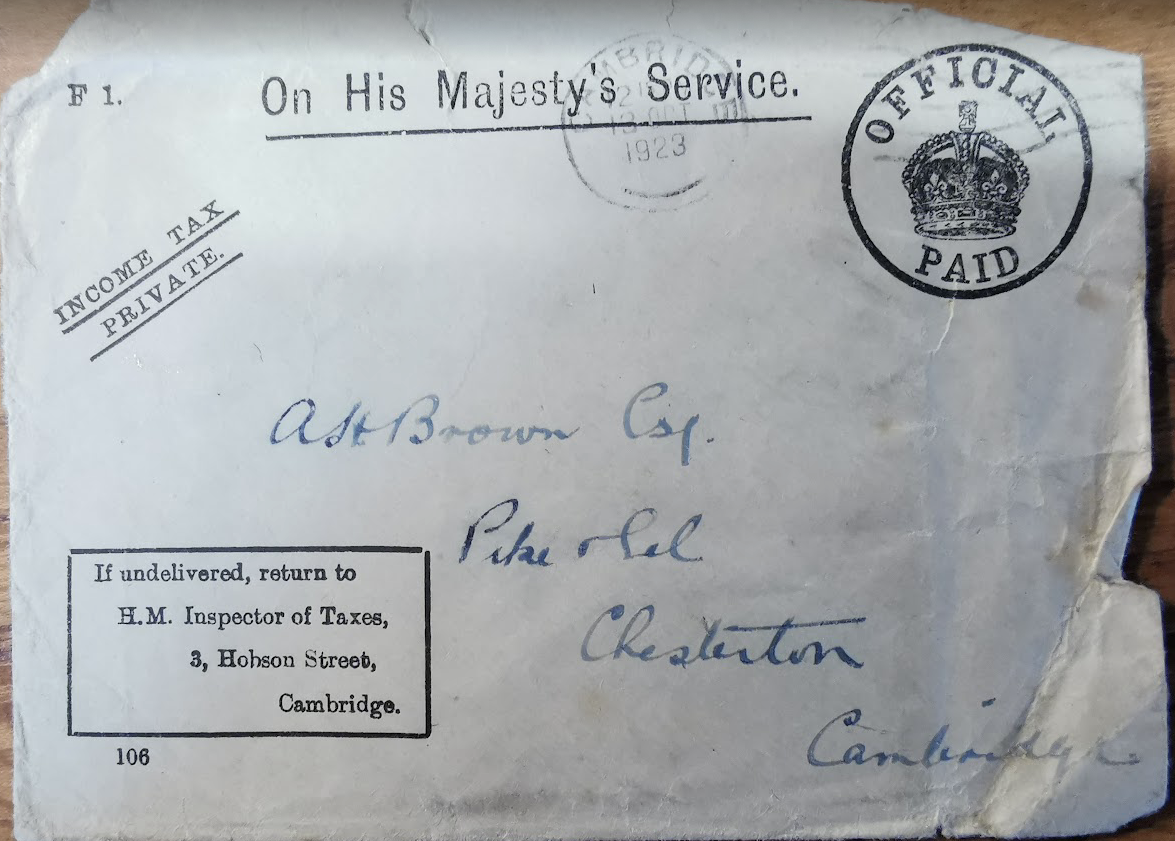 F 1.
On His Majesty's Service.
13 OCT
1923
OFFICIAL
PAID
INCOME TAX
PRIVATE.
A H Brown Esq.
Pike & Eel
Chesterton
Cambridge.
If undelivered, return to
H.M. Inspector of Taxes,
3, Hobson Street,
Cambridge.
106